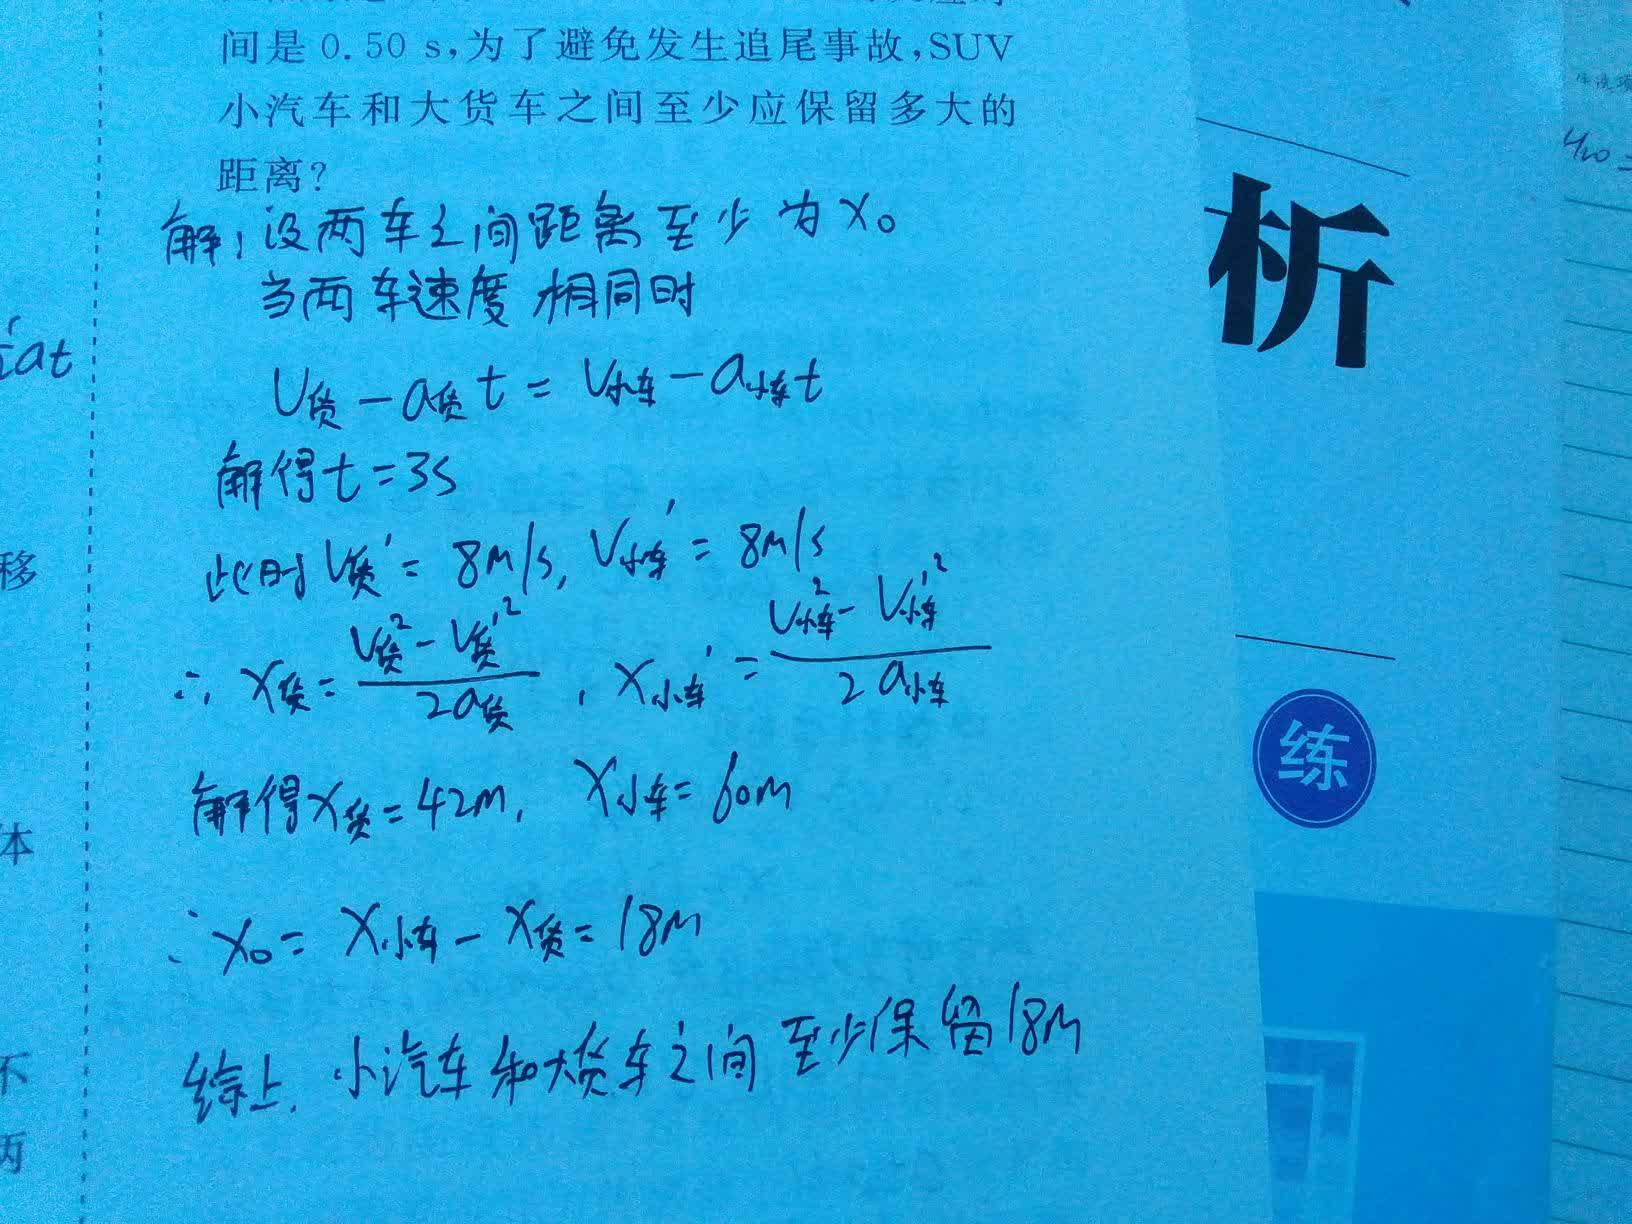 间是 0.50 s,为了避免发生追尾事故,SUV
小汽车和大货车之间至少应保留多大的
距离?
解:设两车之间距离至少为X₀
当两车速度相同时
V货-a货t=V小车-a小车t
解得t=3s
此时V货'=8m/s,V小车'=8m/s
∴X货=(V货²-V货'²)/2a货,X小车'=(V小车²-V小车'²)/2a小车
解得X货=42m,X小车=60m
∴X₀=X小车-X货=18m
综上,小汽车和大货车之间至少保留18m
at
移
体
不
两
析
练